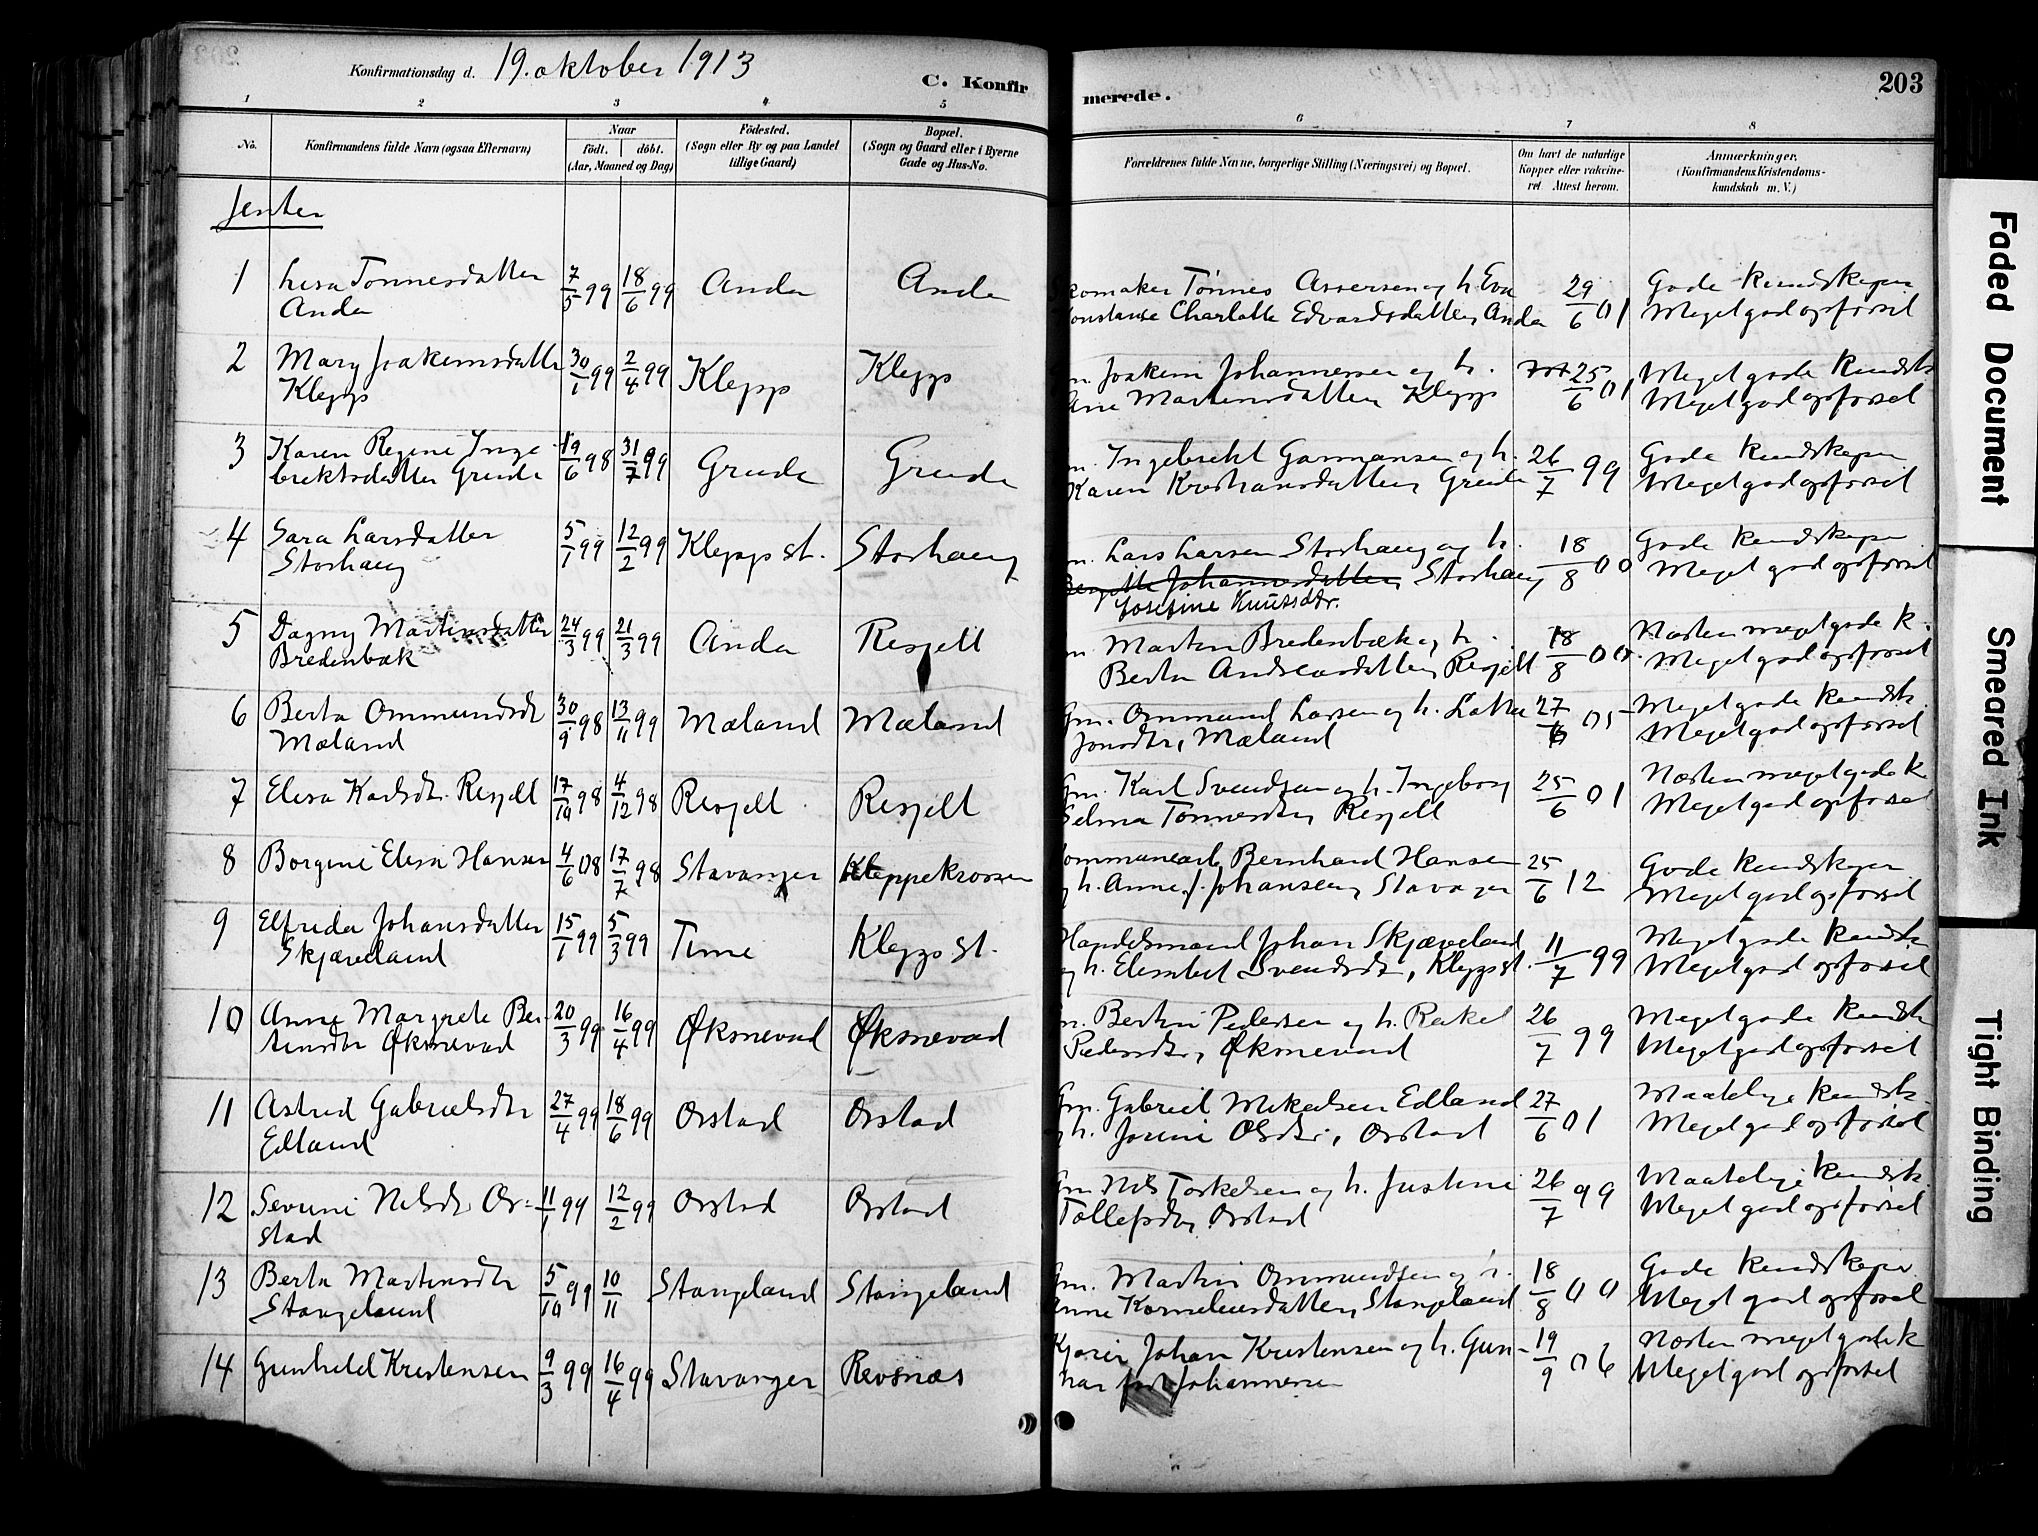 Konfirmationsdag d. 19. oktober 1913
C. Konfir
merede.
203
1 2 3 4 5
6 7 8
No.
Konfirmandens fulde Navn (ogsaa Efternavn)
Naar
födt. döbt.
(Aar, Maaned og Dag)
Födested.
(Sogn eller By og paa Landet
tillige Gaard)
Bopæl.
(Sogn og Gaard eller i Byerne
Gade og Hus-No.
Forældrenes fulde Navne, borgerlige Stilling (Næringsvei) og Bopæl.
Om havt de naturlige
Kopper eller vakcine-
ret Attest herom.
Anmærkninger.
(Konfirmandens Kristendoms-
kundskab m. V.)
Jenter
1 Lisa Tønnesdatter 7/5 99 18/6 99 Anda Anda
Anda
Skomaker Tønnes Assersen og h. Eva 29/6 01 Gode kundskaper
Konstanse Charlotte Edvardsdatter, Anda Meget god opførsel
2 Mary Joakimsdatter 30/1 99 2/4 99 Klepp Klepp
Klepp
m. Joakim Johannesen og h. 25/6 01 Meget gode kundsk.
Ane Martinsdatter, Klepp Meget god opførsel
3 Karen Regine Inge- 19/6 98 31/7 99 Grude Grude
brektsdatter Grude
m. Ingebrekt Garmansen og h. 26/7 99 Gode kundskaper
Karen Kristiansdatter, Grude Meget god opførsel
4 Sara Larsdatter 5/1 99 12/2 99 Klepp st. Storhaug
Storhaug
m. Lars Larsen Storhaug og h. 18/8 00 Gode kundskaper
Bergitte Johannesdatter, Storhaug Meget god opførsel
Josefine Knutsdtr.
5 Dagny Martinsdatter 24/3 99 21/3 99 Anda Resjell
Bredenbæk
m Martin Bredenbæk og h. 18/8 00 Næsten meget gode k.
Berta Andreasdatter, Resjell Meget god opførsel
6 Berta Ommundsdt 30/9 98 13/11 99 Mæland Mæland
Mæland
Gm. Ommund Larsen og h. Lotte 27/6 05 Meget gode kundsk
Jonsdtr, Mæland Meget god opførsel
7 Elisa Karlsdtr. Resjell 17/10 98 4/12 98 Resjell Resjell
Gm. Karl Svendsen og h. Ingeborg 25/6 01 Næsten meget gode k
Selma Tønnesdtr, Resjell Meget god opførsel
8 Borgine Elisa Hansen 4/6 08 17/7 98 Stavanger Kleppekrossen
ommunearb. Bernhard Hansen 25/6 12 Gode kundskaper
og h. Anne J. Johansen, Stavanger Meget god opførsel
9 Elfrida Johansdatter 15/1 99 5/3 99 Time Klepp st.
Skjæveland
Handelsmand Johan Skjæveland 11/7 99 Meget gode kundsk
og h. Elisabet Svendsdtr, Klepp st. Meget god opførsel
10 Anna Margrete Ber- 20/3 99 16/4 99 Øksnevad Øksnevad
tinsdtr Øksnevad
m. Bertin Pedersen og h. Rakel 26/7 99 Meget gode kundsk
Pedersdtr, Øksnevad Meget god opførsel
11 Astrid Gabrielsdtr 27/4 99 18/6 99 Orstad Orstad
Edland
Gm. Gabriel Mikelsen Edland 27/6 01 Maatelige kundsk.
og h. Josine Olsdtr, Orstad Meget god opførsel
12 Sevrine Nilsdtr Or- 11/1 99 12/2 99 Orstad Orstad
stad
Gm. Nils Torkelsen og h. Justine 26/7 99 Maatelige kundsk.
Tollefsdtr, Orstad Meget god opførsel
13 Berta Martinsdtr 5/10 99 10/11 Stangeland Stangeland
Stangeland
Gm. Martin Ommundsen og h. 18/8 00 Gode kundskaper
Anne Korneliusdatter, Stangeland Meget god opførsel
14 Gunhild Kristensen 9/3 99 16/4 99 Stavanger Revsnæs
Kjører Johan Kristensen og h. Gun- 19/9 06 Næsten meget gode k
har Johannesen Meget god opførsel
Faded Document
Smeared Ink
Tight Binding